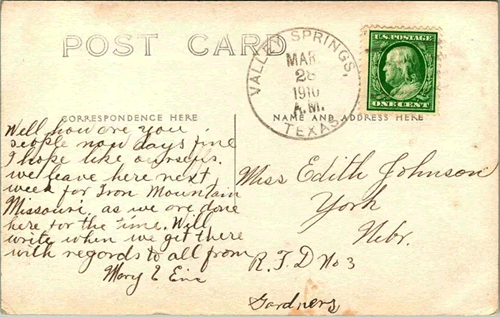 POST CARD
VALLEY SPRINGS,
MAR
28
1910
A.M.
TEXAS
U.S. POSTAGE
ONE CENT
CORRESPONDENCE HERE
NAME AND ADDRESS HERE
Well how are you
people now days fine
I hope like ourselfs.
we leave here next
week for Iron Mountain
Missouri, as we are done
here for the time. Will
write when we get there
with regards to all from
Mary E
Miss Edith Johnson
York
Nebr.
R.F.D No 3
Gardners